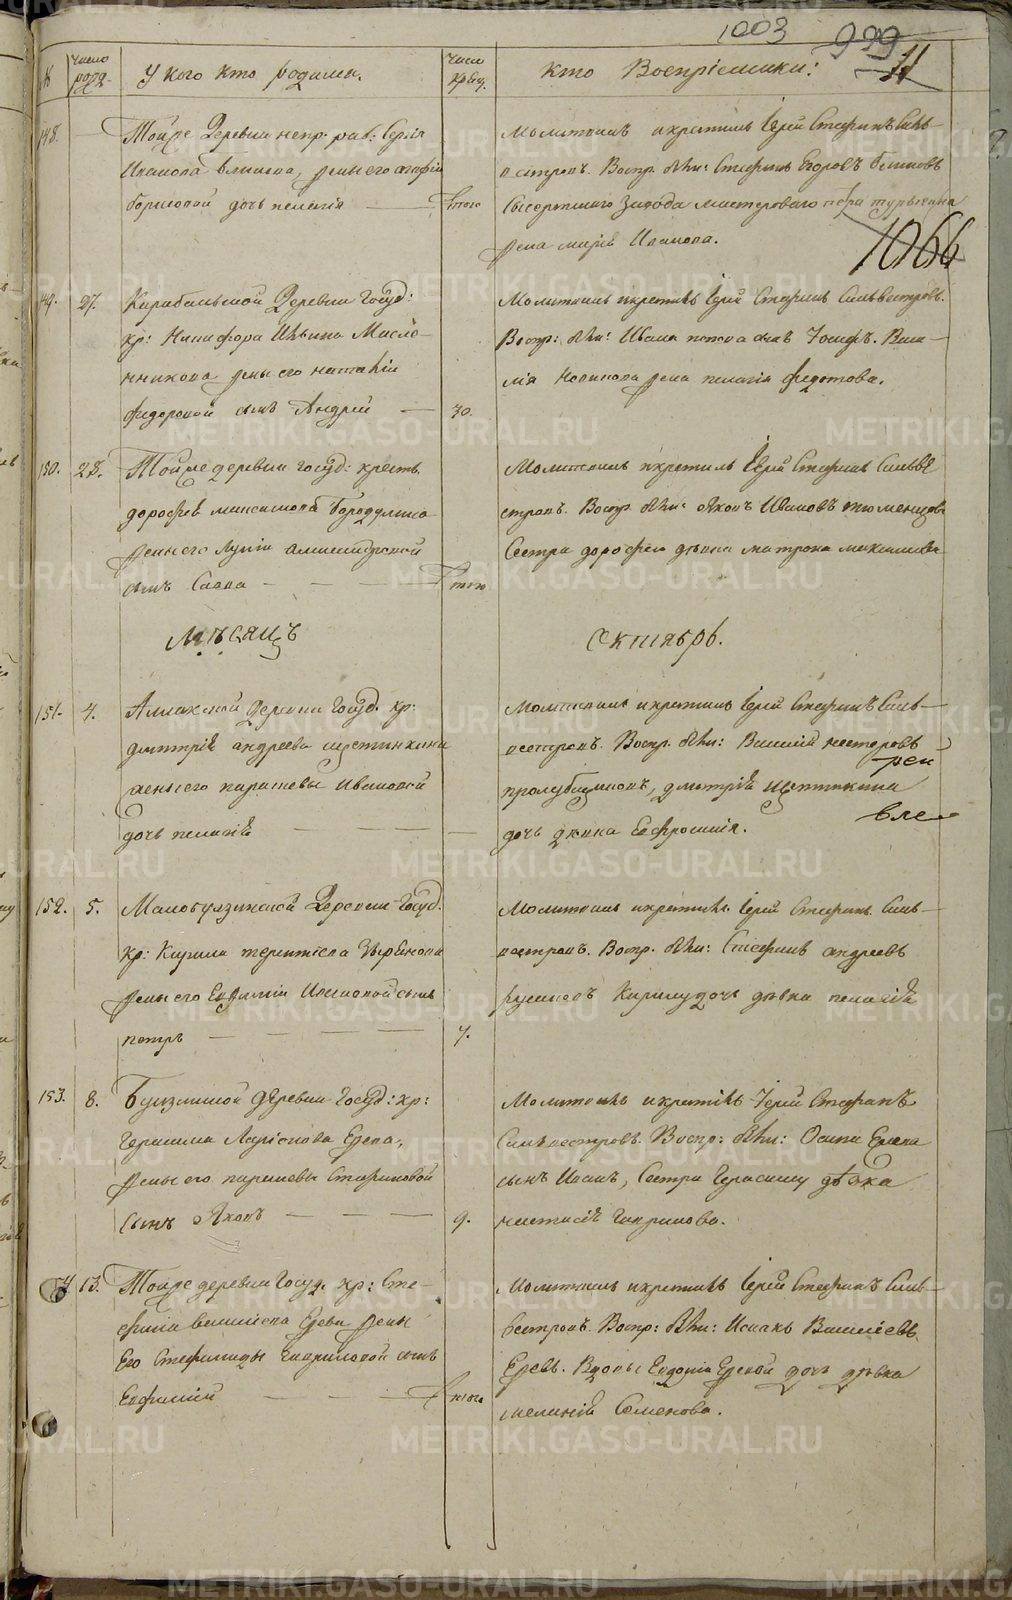 1003 999
11
№
число рожд.
У кого кто родились.
число крещ.
Кто Воспріемники:
148.
Тойже Деревни непр: раб: Сергія
Иванова Блинова, жены его
Борисовой дочь пелагія
того
Молитвилъ икрестилъ Іерей Стефанъ Силь-
вестровъ. Воспр. были: Стефанъ Егоровъ Блиновъ
Сысертскаго Завода мастероваго
жена марія Иванова.
1066
149. 27.
Карабольской Деревни Госуд:
кр: Никифора Ильина Масло-
жены его наталіи
федоровой сынъ Андрей
30.
Молитвилъ икрестилъ Іерей Стефанъ Сильвестровъ.
Воспр: были: Ивана сынъ Іосифъ. Васи-
лія жена пелагія федотова.
150. 28.
Тойже деревни госуд: крестья.
дорофея максимова Бородулина
жены его Лукіи
сынъ Савва
того
Молитвилъ икрестилъ Іерей Стефанъ Сильве
стровъ. Воспр. были: Яковъ Ивановъ тюменцовъ
Сестра дорофею дѣвка матрона максимова
Мѣсяцъ
Октябрь.
151. 4.
Аллакской Деревни Госуд. кр:
дмитрія андреева щетинкина
жены его парасковьи Ивановой
дочь пелагія
Молитвилъ икрестилъ Іерей Стефанъ Силь-
вестровъ. Воспр. были: Василій нестеровъ
рен
пролубщиковъ, дмитрія щетинкина
вле
дочь дѣвка Евфросинія.
152. 5.
Малобулзинской Деревни Госуд.
кр: Кирила терентіева Зырянова
жены его Евфиміи сынъ
петръ
7.
Молитвилъ икрестилъ Іерей Стефанъ Силь-
вестровъ. Воспр. были: Стефанъ андреевъ
русиновъ Кирилу дочь дѣвка пелагія
153. 8.
Булзинской деревни Госуд: кр:
Герасима Ларіонова Ерева,
жены его парасковьи Стефановой
сынъ Яковъ
9.
Молитвилъ икрестилъ Іерей Стефанъ
Сильвестровъ. Воспр: были: Осипа Ерева
сынъ Иванъ, Сестра Герасиму дѣвка
настасія Гаврилова.
154 13.
Тойже деревни Госуд. кр: Сте-
фана василіева Ерева жены
Его Стефаниды Гавриловой сынъ
Евфимій
того
Молитвилъ икрестилъ Іерей Стефанъ Силь-
вестровъ. Воспр: были: Исаакъ Василіевъ
Еревъ. Вдовы Евдокіи Еревой дочь дѣвка
меланія Семенова.
METRIKI.GASO-URAL.RU